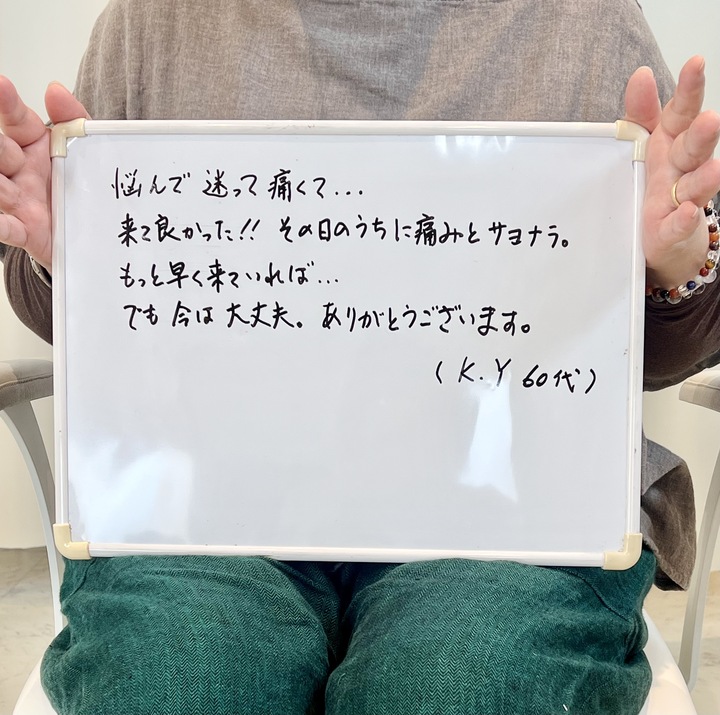 悩んで 迷って 痛くて...
来て良かった!! その日のうちに痛みとサヨナラ。
もっと早く来ていれば...
でも 今は 大丈夫。ありがとうございます。
(K.Y 60代)